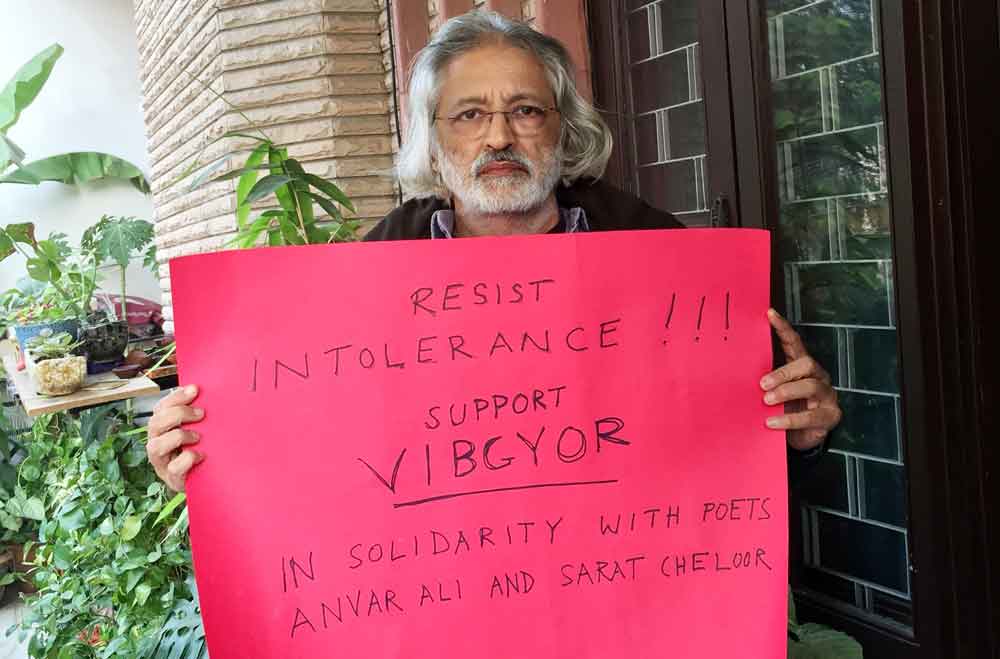 RESIST
INTOLERANCE !!!
SUPPORT
VIBGYOR
IN SOLIDARITY WITH POETS
ANVAR ALI AND SARAT CHELOOR